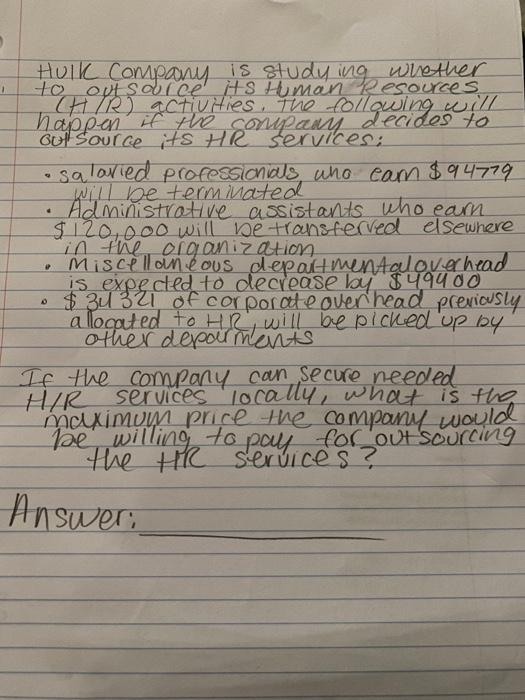 Hulk Company is studying whether
to outsource its Human Resources
(H/R) activities. The following will
happen if the company decides to
outsource its HR services:
• salaried professionals who earn $94779
will be terminated
• Administrative assistants who earn
$120,000 will be transferred elsewhere
in the organization
• Miscellaneous departmental overhead
is expected to decrease by $49400
• $34321 of corporate overhead previously
allocated to HR, will be picked up by
other deparments
If the company can secure needed
H/R services locally, what is the
maximum price the company would
be willing to pay for outsourcing
the HR services?
Answer: